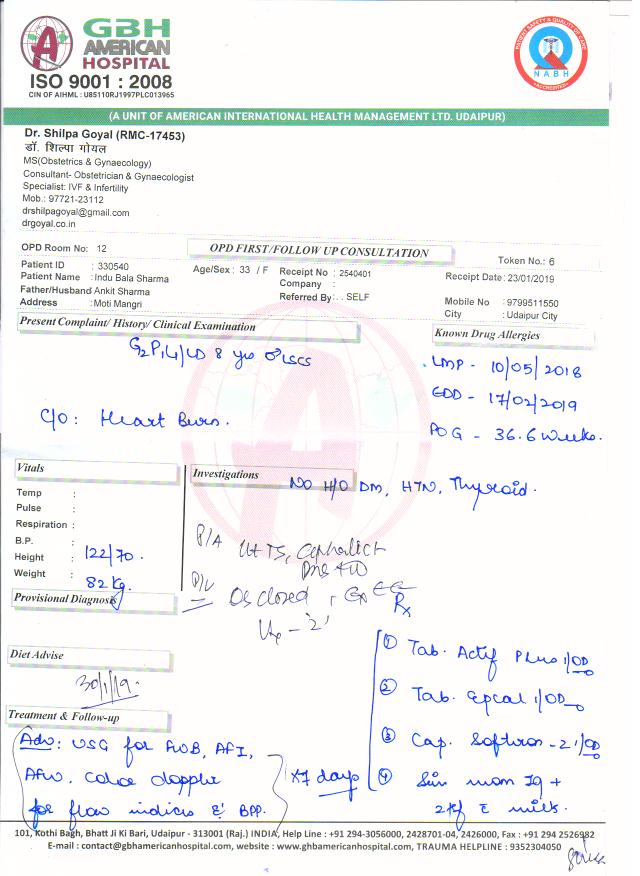 GBH
AMERICAN
HOSPITAL
ISO 9001 : 2008
CIN OF AIHML : U85110RJ1997PLC013965
PATIENT SAFETY & QUALITY OF CARE
NABH
ACCREDITED
(A UNIT OF AMERICAN INTERNATIONAL HEALTH MANAGEMENT LTD. UDAIPUR)
Dr. Shilpa Goyal (RMC-17453)
डॉ. शिल्पा गोयल
MS(Obstetrics & Gynaecology)
Consultant- Obstetrician & Gynaecologist
Specialist: IVF & Infertility
Mob.: 97721-23112
drshilpagoyal@gmail.com
drgoyal.co.in
OPD Room No: 12
OPD FIRST/FOLLOW UP CONSULTATION
Token No.: 6
Patient ID : 330540
Age/Sex : 33 / F
Receipt No : 2540401
Receipt Date : 23/01/2019
Patient Name : Indu Bala Sharma
Company :
Father/Husband Ankit Sharma
Referred By : . SELF
Mobile No : 9799511550
Address : Moti Mangri
City : Udaipur City
Present Complaint/ History/ Clinical Examination
Known Drug Allergies
G2P1L1/LD 8 yrs LSCS
LMP - 10/05/2018
EDD - 17/02/2019
C/O: Heart Burn.
POG - 36.6 weeks.
Vitals
Investigations
NO H/O DM, HTN, Thyroid.
Temp :
Pulse :
Respiration :
B.P. :
P/A
Height : 122/70.
Weight : 82 kg.
P/V Os closed,
Provisional Diagnosis
Rx
Diet Advise
① Tab. Actif Plus 1/OD
30/1/19.
② Tab. Epcal 1/OD
Treatment & Follow-up
Adv: USG for FWB, AFI,
③ Cap. Softron-Z 1/OD
AFW. Color doppler
x7 days
for flow indices & BPP.
④
milk.
101, Kothi Bagh, Bhatt Ji Ki Bari, Udaipur - 313001 (Raj.) INDIA, Help Line : +91 294-3056000, 2428701-04, 2426000, Fax : +91 294 2526982
E-mail : contact@gbhamericanhospital.com, website : www.gbhamericanhospital.com, TRAUMA HELPLINE : 9352304050